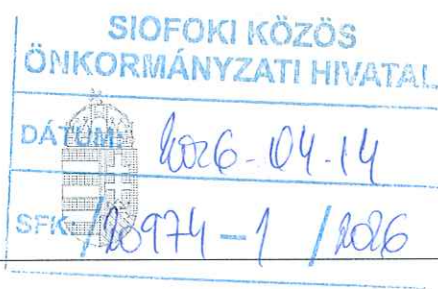 SIÓFOKI KÖZÖS
ÖNKORMÁNYZATI HIVATAL
DÁTUM: 2026-04-14
SFK /20974-1 /2026